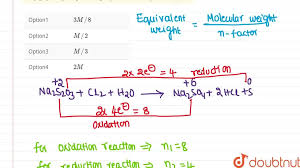 Option1 3M/8
Option2 M/2
Option3 M/3
Option4 2M
Equivalent weight = Molecular weight / n-factor
2x 2e⊖ = 4 reduction
+2 +6 0
Na2S2O3 + Cl2 + H2O → Na2SO4 + 2HCl + S
2x 4e⊖ = 8
oxidation
for oxidation reaction ⇒ n1 = 8
for reduction reaction ⇒ n2 = 4
doubtnut